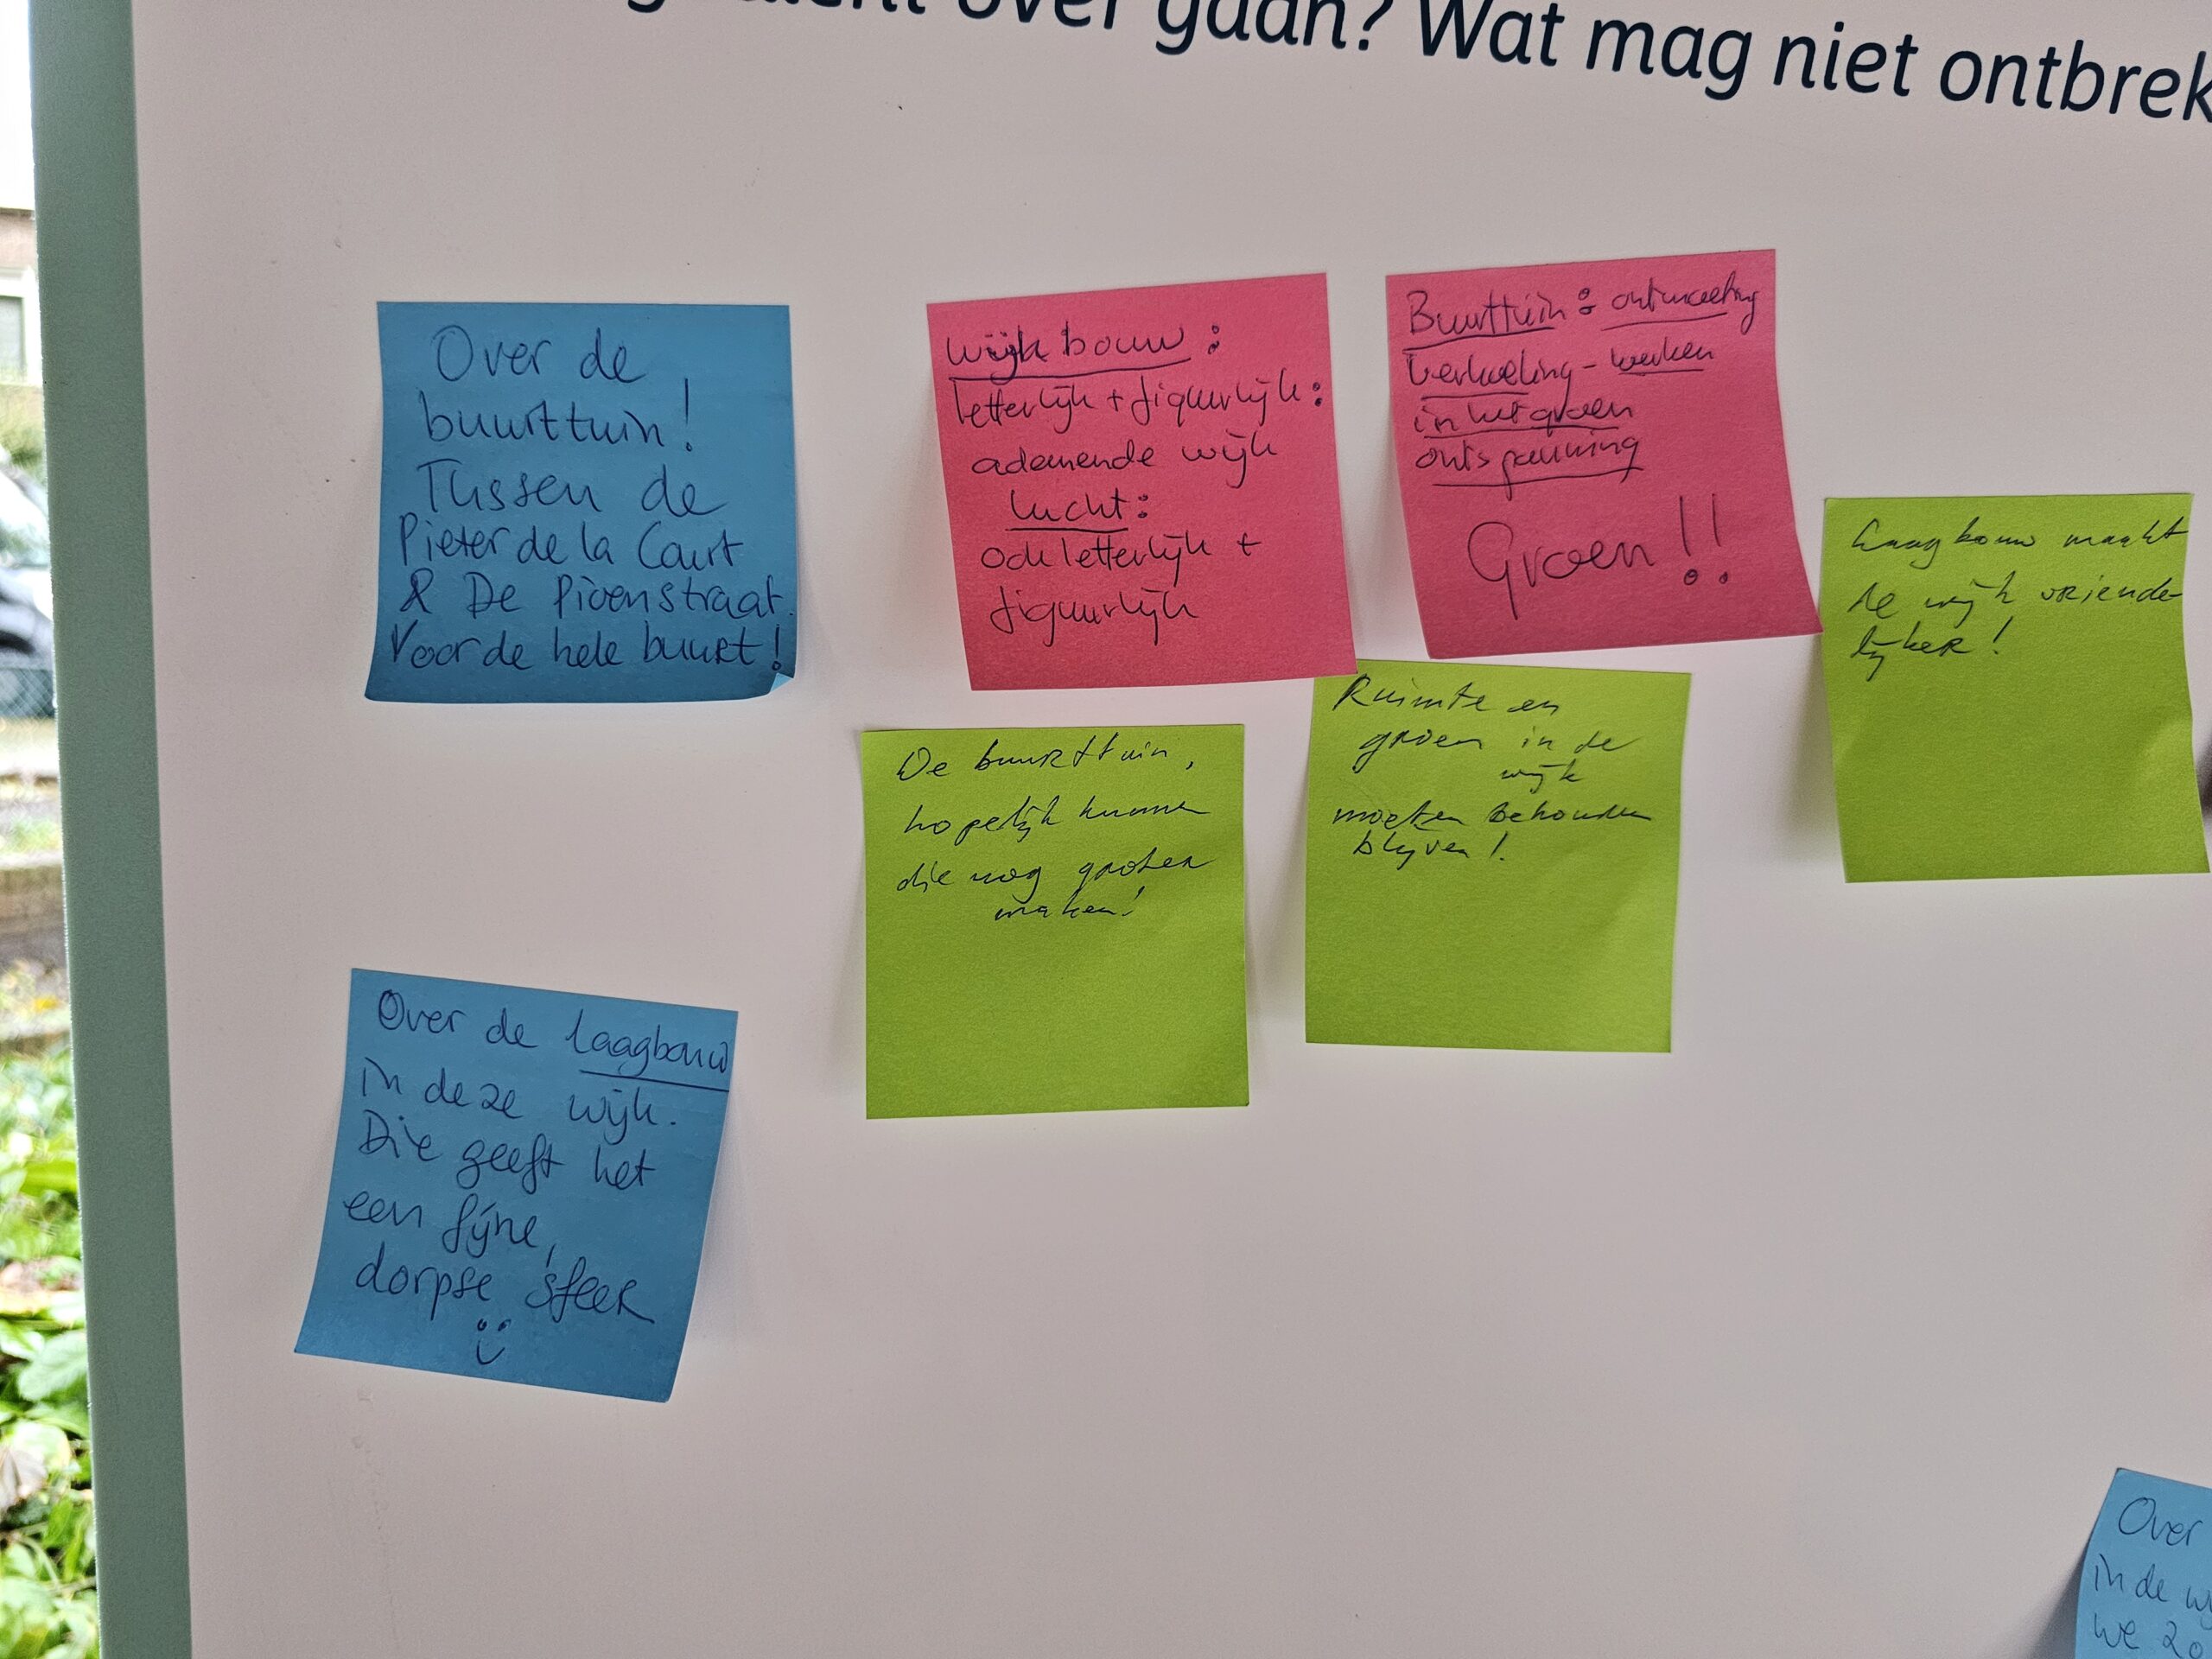 over gaan? Wat mag niet ontbrek
Over de
buurttuin!
Tussen de
Pieter de la Court
& De Pioenstraat.
Voor de hele buurt!
wijkbouw:
letterlijk + figuurlijk:
ademende wijk
lucht:
ook letterlijk +
figuurlijk
Buurttuin: ontmoeting
verkoeling - werken
in het groen
ontspanning
Groen!!
Laagbouw maakt
de wijk vriende-
lijker!
De buurttuin,
hopelijk kunnen
die nog groter
maken!
Ruimte en
groen in de
wijk
moeten behouden
blijven!
Over de laagbouw
in deze wijk.
Die geeft het
een fijne,
dorpse sfeer
Over
in de
we